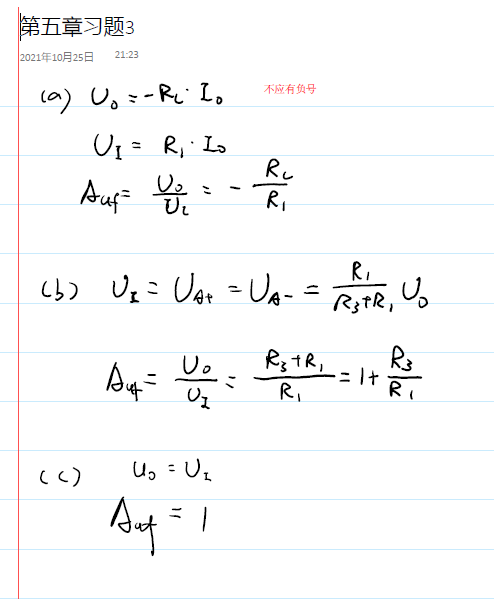 第五章习题3
2021年10月25日 21:23
(a) U₀ = -R_L · I₀ 不应有负号
U_I = R₁ · I₀
A_uf = U₀/U_I = - R_L/R₁
(b) U_I = U_A+ = U_A- = R₁/(R₃+R₁) U₀
A_uf = U₀/U_I = (R₃+R₁)/R₁ = 1 + R₃/R₁
(c) u₀ = U_I
A_uf = 1